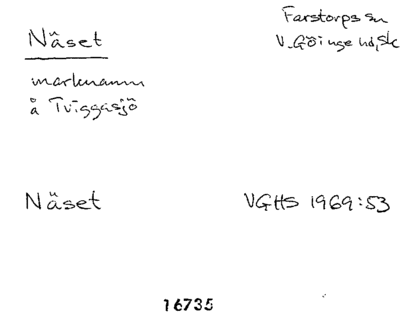 Näset
Farstorps sn
V. Göinge hd, Sk
marknamn
å Tviggasjö
Näset
VGHS 1969:53
16735